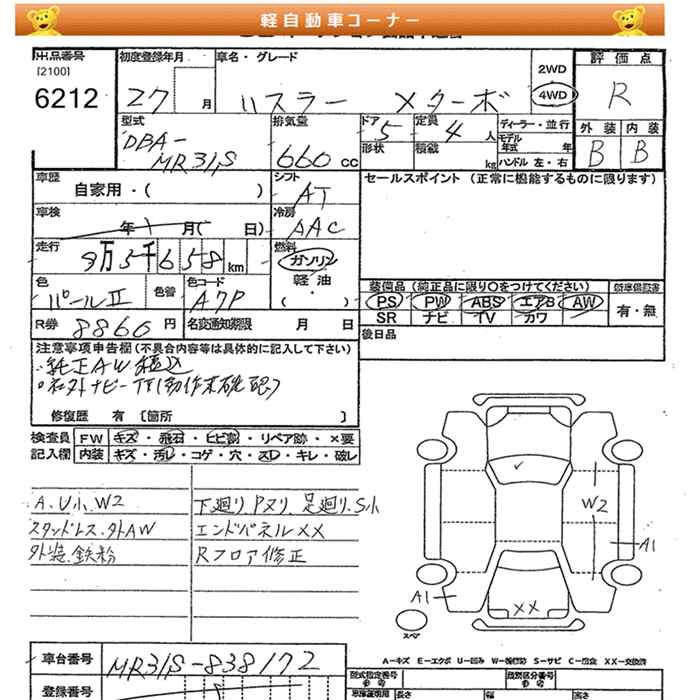 軽自動車コーナー
出品番号
[2100]
6212
初度登録年月
27 月
車名・グレード
ハスラー Xターボ
2WD
4WD
評価点
R
外装 内装
B B
型式
DBA-
MR31S
排気量
660 cc
ドア 5
定員 4 人
形状
積載 kg
ディーラー・並行
モデル年式 年
ハンドル 左・右
車歴
自家用・( )
シフト
AT
セールスポイント (正常に機能するものに限ります)
車検
年 月( 日)
冷房
AAC
走行
9万5千658km
燃料
ガソリン
軽油
・( )
色
パールⅡ
色替
色コード
A7P
装備品 (純正品に限り○をつけてください)
PS PW ABS エアB AW
SR ナビ TV カワ
有・無
R券 8860 円
名変通知期限 月 日
後日品
注意事項申告欄 (不具合内容等は具体的に記入して下さい)
・純正AW積込
○社外ナビーTV(動作未確認)
修復歴 有 [箇所 ]
検査員
記入欄
FW キズ・飛石・ヒビ割・リペア跡・×要
内装 キズ・汚レ・コゲ・穴・スレ・キレ・破レ
A.U小.W2
スタッドレス.外AW
外装.鉄粉
下廻り.Pヌリ.足廻り.S小
エンドパネルXX
Rフロア修正
W2
A1
A1
XX
スペア
車台番号
MR31S-838172
登録番号
A-キズ E-エクボ U-凹み W-補修跡 S-サビ C-腐食 XX-交換済
型式指定番号
類別区分番号
長さ
幅
高さ